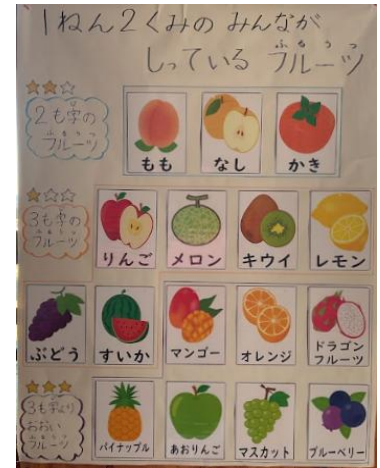 1ねん2くみの みんなが
しっている フルーツ
ふるうつ
2も字の
フルーツ
ふるうつ
もも
なし
かき
3も字の
フルーツ
ふるうつ
りんご
メロン
キウイ
レモン
ぶどう
すいか
マンゴー
オレンジ
ドラゴン
フルーツ
3も字より
おおい
フルーツ
ふるうつ
パイナップル
あおりんご
マスカット
ブルーベリー